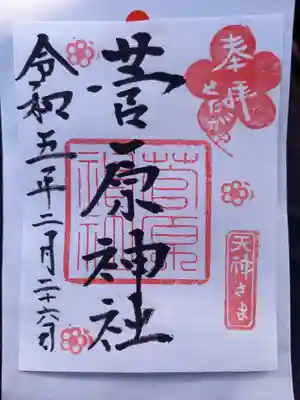 奉拝
せたがや
菅原神社
天神さま
令和五年二月二十六日